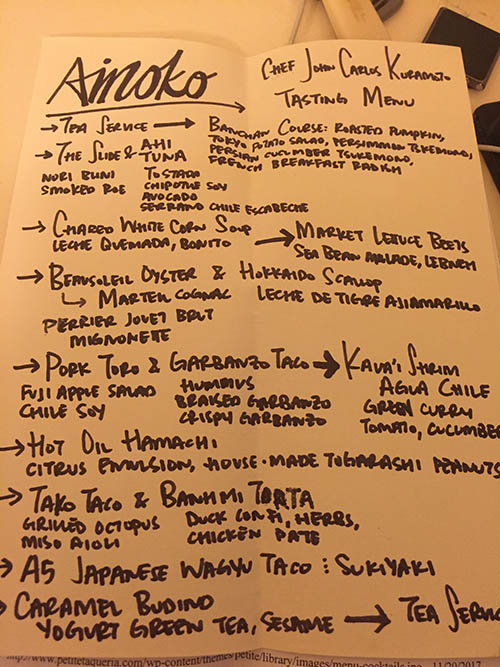 AINOKO
CHEF JOHN CARLOS KURAMOTO
TASTING MENU
→ TEA SERVICE → BANCHAN COURSE: ROASTED PUMPKIN,
TOKYO POTATO SALAD, PERSIMMON TSUKEMONO,
PERSIAN CUCUMBER TSUKEMONO,
FRENCH BREAKFAST RADISH
→ THE SLIDE & AHI TUNA
NORI BUNI
SMOKED ROE
TOSTADO
CHIPOTLE SOY
AVOCADO
SERRANO CHILE ESCABECHE
→ CHARED WHITE CORN SOUP
LECHE QUEMADA, BONITO
→ MARKET LETTUCE BEETS
SEA BEAN LEBNEH
→ BEAUSOLEIL OYSTER & HOKKAIDO SCALLOP
↳ MARTELL COGNAC
LECHE DE TIGRE AJIAMARILLO
PERRIER JOUET BRUT
MIGNONETTE
→ PORK TORO & GARBANZO TACO → KAUA'I SHRIM
FUJI APPLE SALAD
CHILE SOY
HUMMUS
BRAISED GARBANZO
CRISPY GARBANZO
AGUA CHILE
GREEN CURRY
TOMATO, CUCUMBER
→ HOT OIL HAMACHI
CITRUS EMULSION, HOUSE-MADE TOGARASHI PEANUTS
→ TAKO TACO & BANH MI TORTA
GRILLED OCTOPUS
MISO AIOLI
DUCK CONFI, HERBS,
CHICKEN PATE
→ A5 JAPANESE WAGYU TACO : SUKIYAKI
→ CARAMEL BUDINO
YOGURT GREEN TEA, SESAME → TEA SERVI
http://www.petitetaqueria.com/wp-content/themes/petite/library/images/menu-cocktails.jpg 11/20/2017